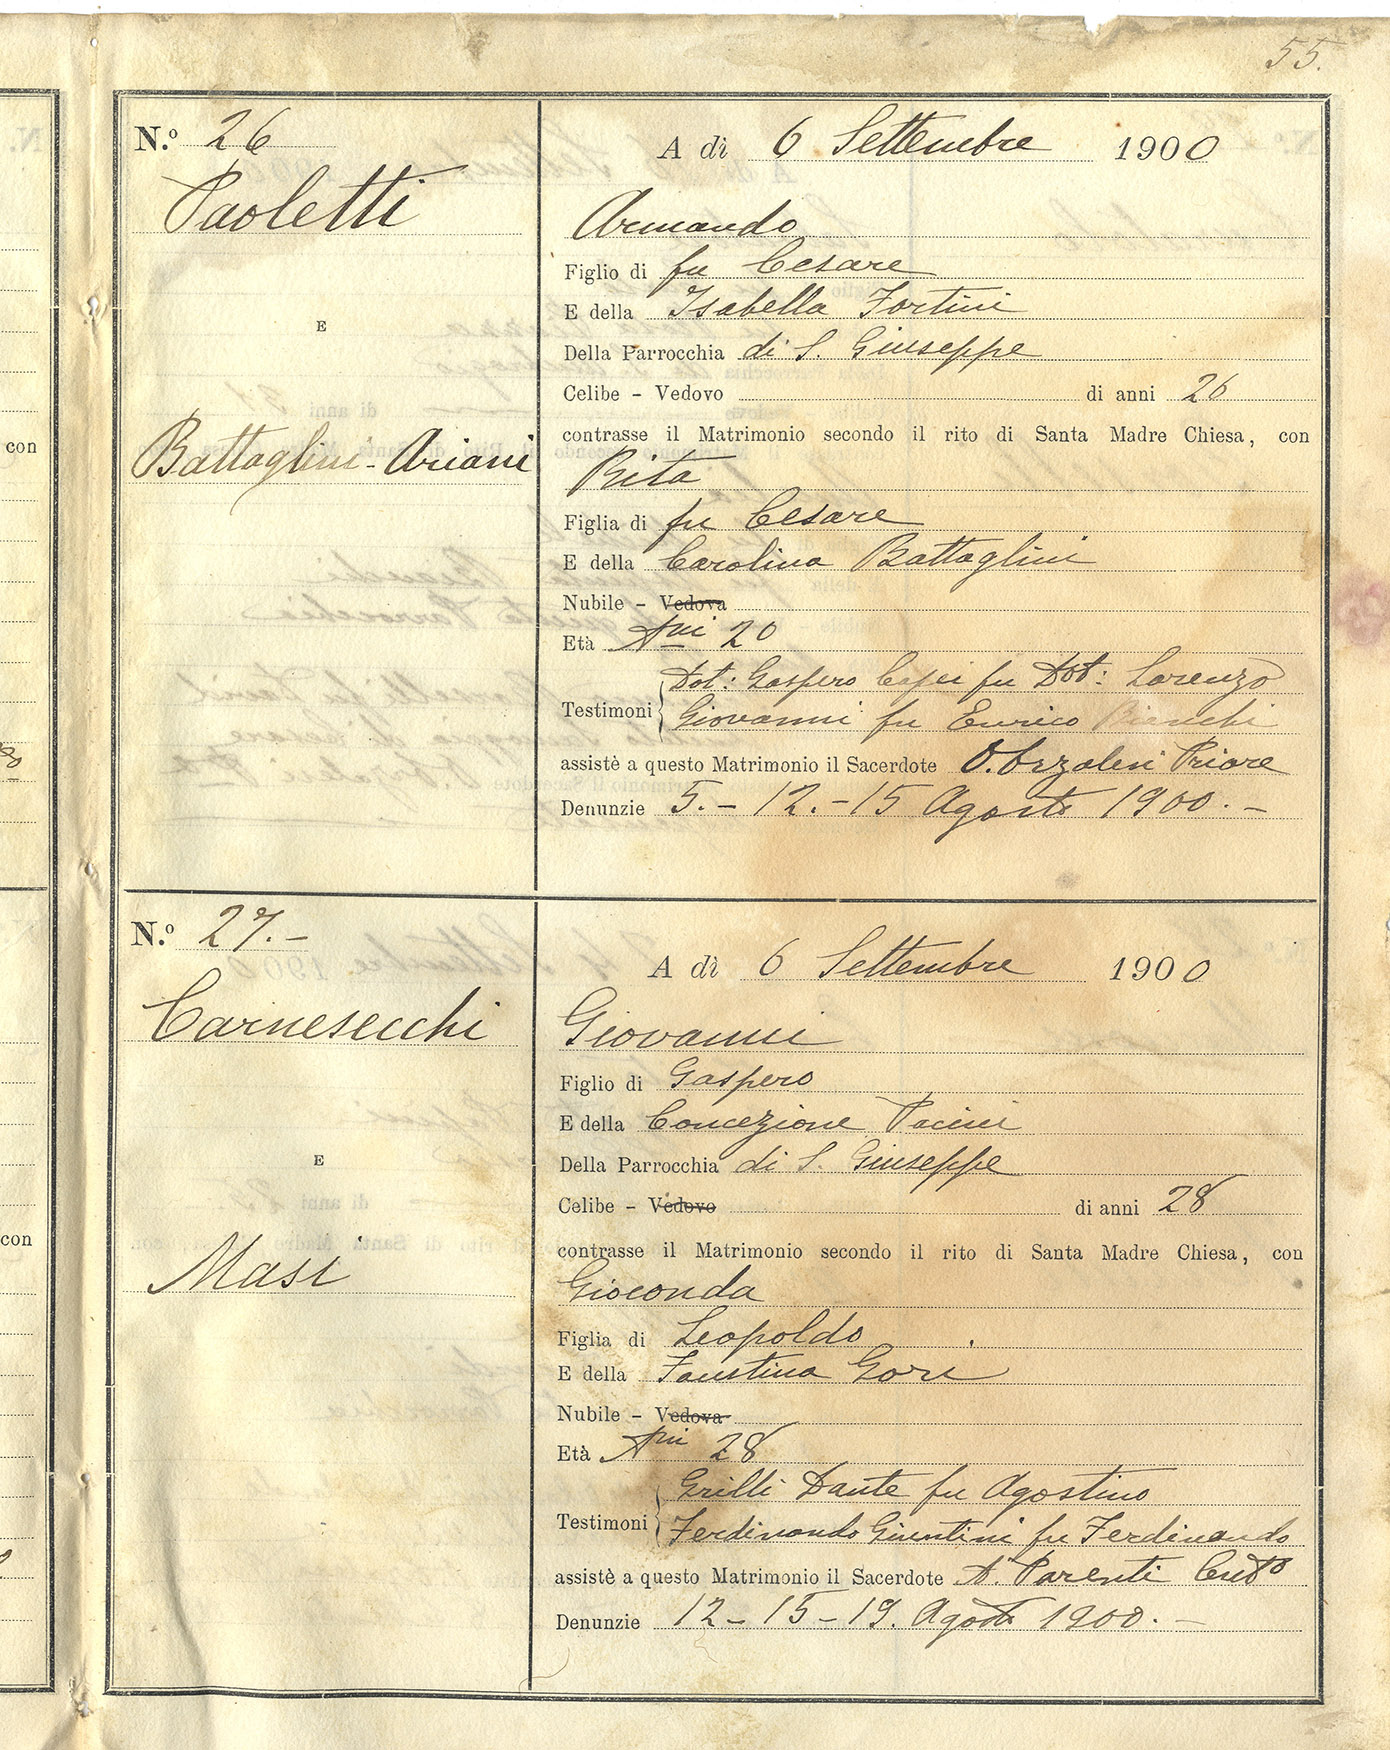 55.
N.º 26
A dì 6 Settembre 1900
Paoletti
Armando
Figlio di fu Cesare
E della Isabella Fortini
E
Della Parrocchia di S. Giuseppe
Celibe - Vedovo di anni 26
contrasse il Matrimonio secondo il rito di Santa Madre Chiesa, con
Battaglini-Ariani
Rita
Figlia di fu Cesare
E della Carolina Battaglini
Nubile - Vedova
Età Ani 20
Dot: Gaspero Capei fu Dot: Lorenzo
Testimoni Giovanni fu Enrico Bianchi
assistè a questo Matrimonio il Sacerdote O. Orzalesi Priore
Denunzie 5. - 12. - 15 Agosto 1900. -
N.º 27. -
A dì 6 Settembre 1900
Carnesecchi
Giovanni
Figlio di Gaspero
E della Concezione Pacini
E
Della Parrocchia di S. Giuseppe
Celibe - Vedovo di anni 28
contrasse il Matrimonio secondo il rito di Santa Madre Chiesa, con
Masi
Gioconda
Figlia di Leopoldo
E della Faustina Gori
Nubile - Vedova
Età Ani 28
Grilli Dante fu Agostino
Testimoni Ferdinando Giuntini fu Ferdinando
assistè a questo Matrimonio il Sacerdote A. Parenti
Denunzie 12 - 15 - 19. Agosto 1900. -
con
con